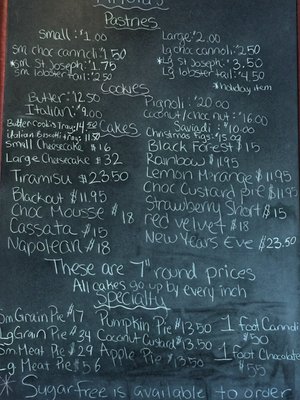 Pastries
Small: $1.00 Large: $2.00
sm choc cannoli: $1.50 Lg choc cannoli: $2.50
*sm St Joseph: $1.75 *Lg St Joseph: $3.50
sm lobster tail: $2.50 Lg lobster tail: $4.50
*holiday item
Cookies
Butter: $12.50 Pignoli: $20.00
Italian: $9.00 Coconut/choc nut: $16.00
Butter Cookie Tray: $14.50 Saviadi: $10.00
Italian Biscotti Tray: $11.50 Cakes Christmas Figs: $15.00
Small Cheesecake $16 Black Forest $15
Large Cheesecake $32 Rainbow $11.95
Tiramisu $23.50 Lemon Mirange $11.95
Blackout $11.95 Choc Custard pie $11.95
Choc Mousse $18 Strawberry Short $15
Cassata $15 red velvet $18
Napolean $18 New Years Eve $23.50
These are 7" round prices
All cakes go up by every inch
Specialty
Sm Grain Pie $17 Pumpkin Pie $13.50 1 foot Cannoli $50
Lg Grain Pie $34 Coconut Custard $13.50
Sm Meat Pie $29 Apple Pie $13.50 1 foot Chocolate $55
Lg Meat Pie $56
* Sugar free is available to order